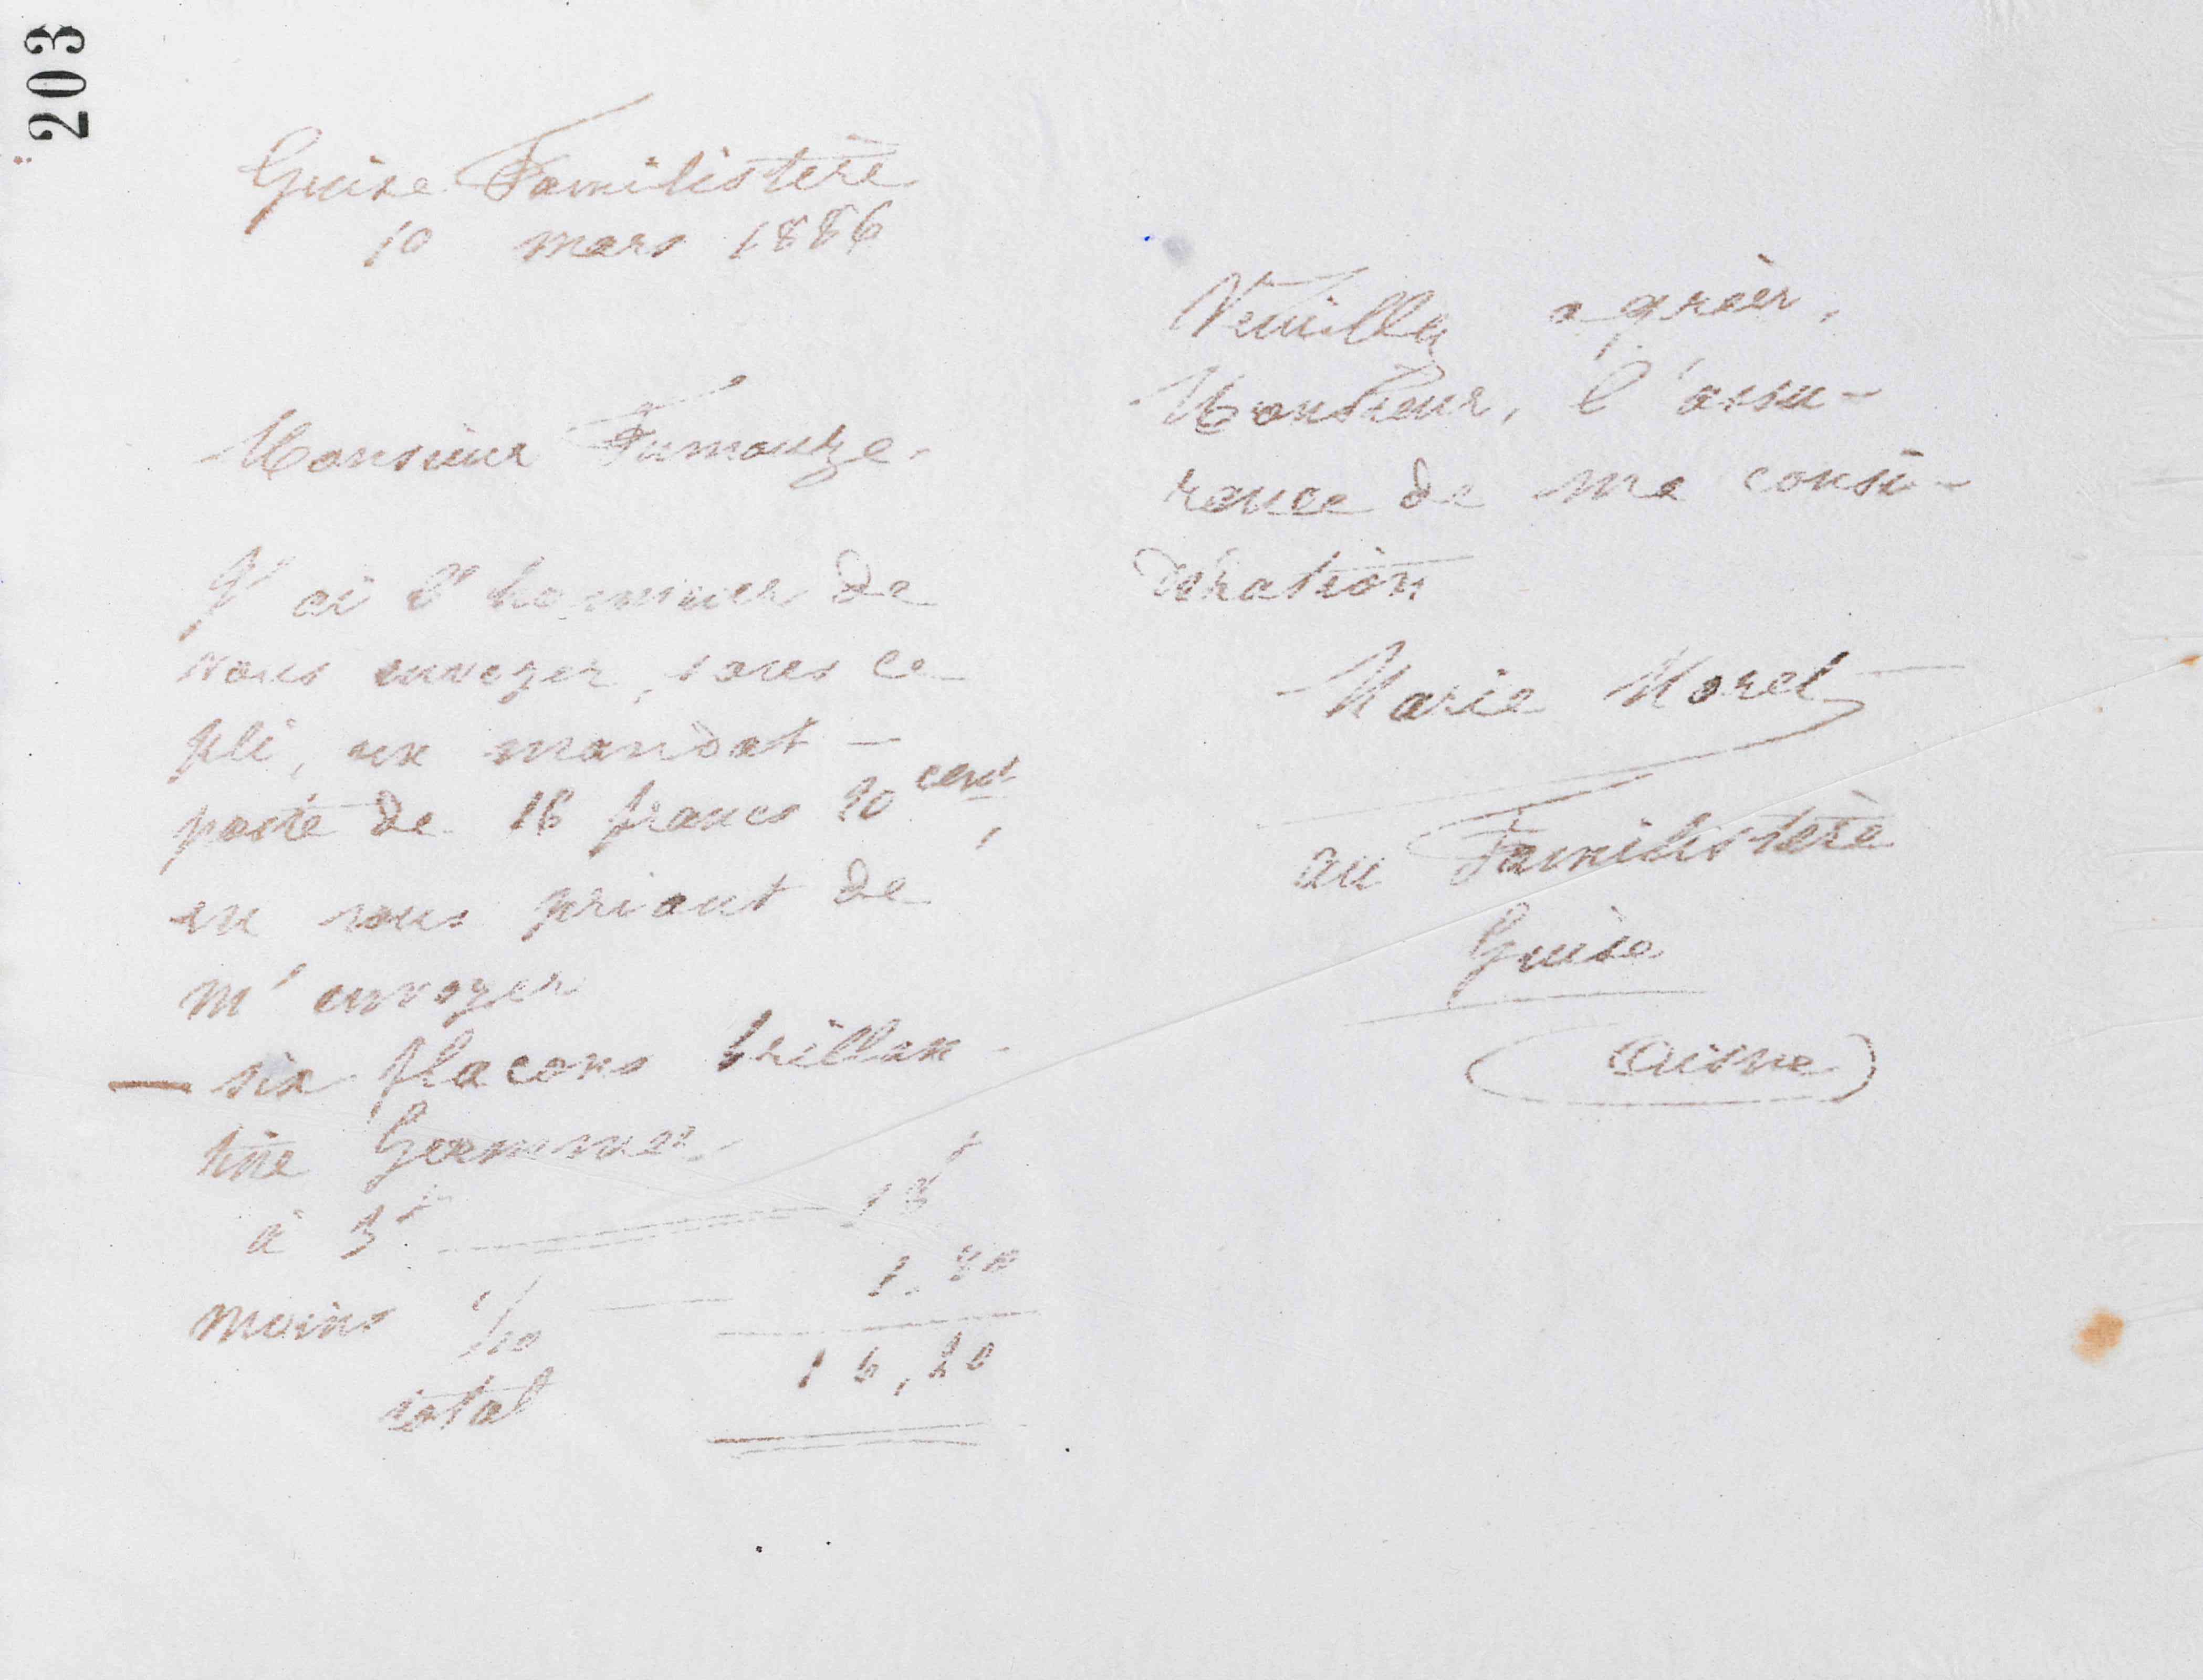 203
Guise Familistère
10 mars 1886
Monsieur Fumouze.
J'ai l'honneur de
vous envoyer, sous ce
pli, un mandat-
poste de 16 francs 20 cent,
en vous priant de
m'envoyer
— six flacons brillan-
tine
à 3f 18f
moins 1/10 1.80
total 16,20
Veuillez agréer,
Monsieur, l'assu-
rance de ma consi-
dération
Marie Moret
au Familistère
Guise
(Aisne)